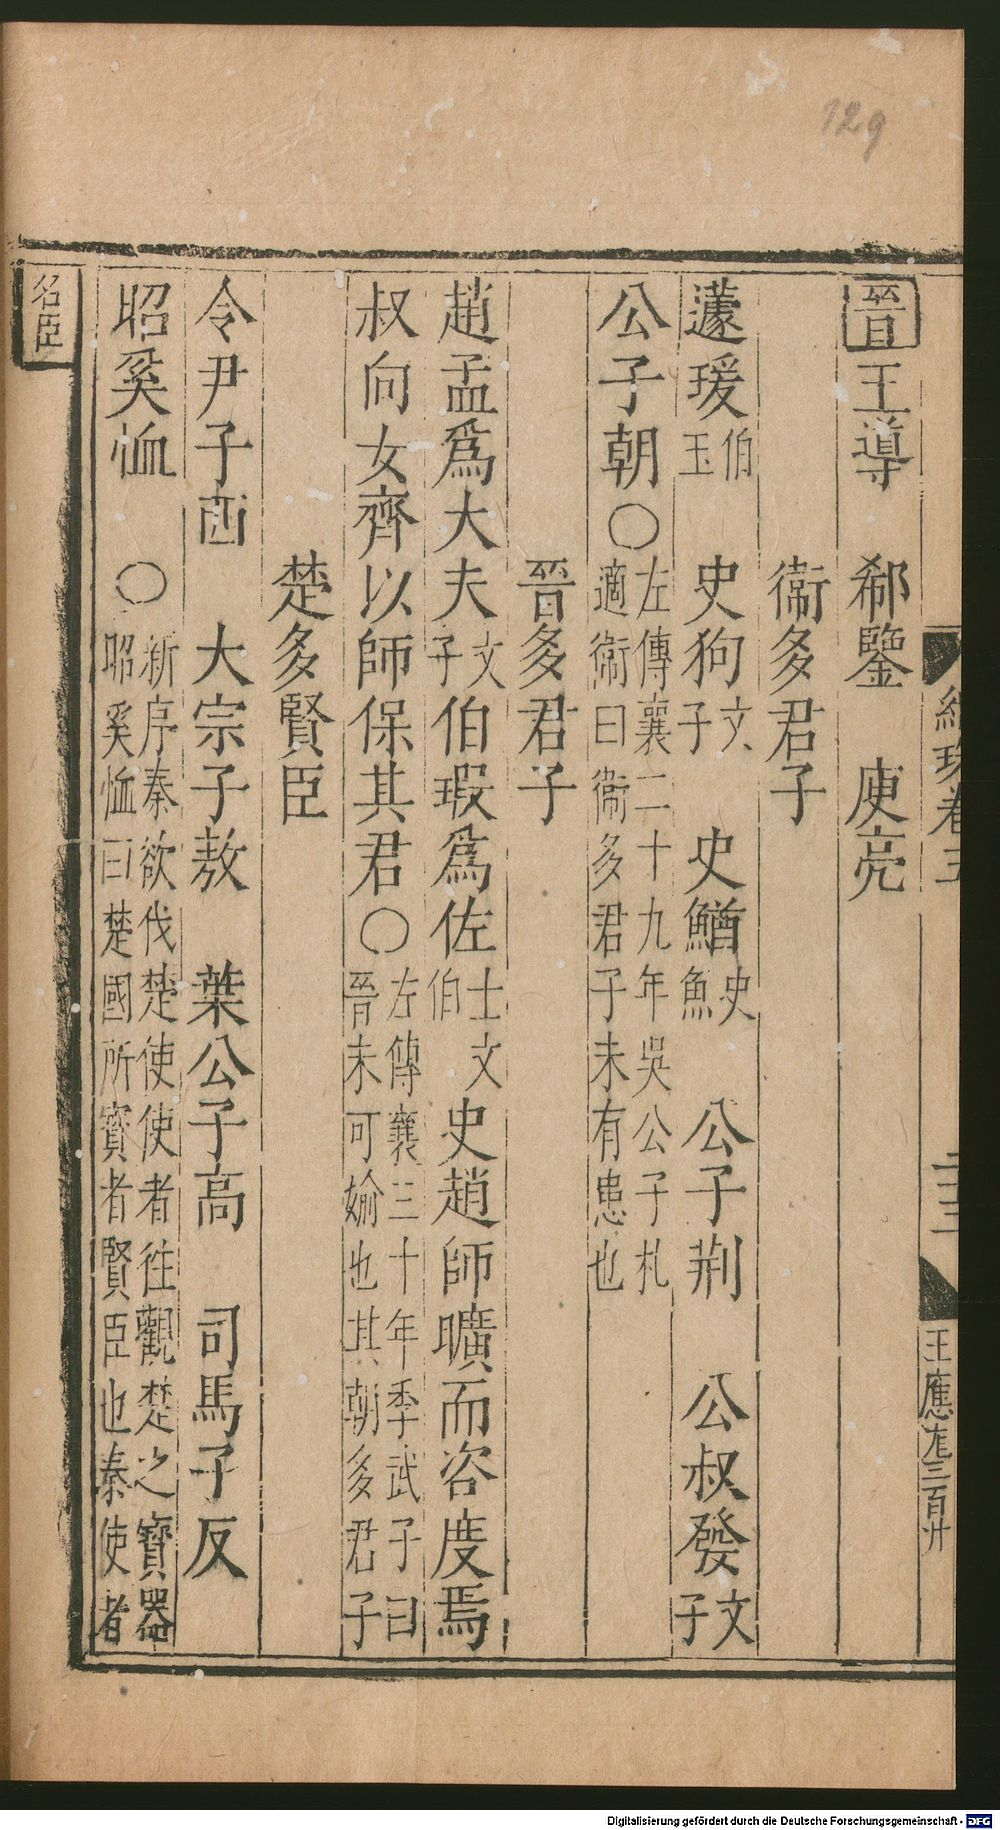 129
紺珠卷五
二十三
王應龙三百廿
晉王導　郗鑒　庾亮
衞多君子
蘧瑗伯玉　史狗文子　史鰌史魚　公子荆　公叔發文子
公子朝〇左傳襄二十九年吳公子札適衞曰衞多君子未有患也
晉多君子
趙孟爲大夫文子伯瑕爲佐士文伯史趙師曠而咨度焉
叔向女齊以師保其君〇左傳襄三十年季武子曰晉未可媮也其朝多君子
楚多賢臣
令尹子西　大宗子敖　葉公子高　司馬子反
昭奚恤　〇新序秦欲伐楚使使者往觀楚之寶器昭奚恤曰楚國所寶者賢臣也秦使者
名臣
Digitalisierung gefördert durch die Deutsche Forschungsgemeinschaft - DFG